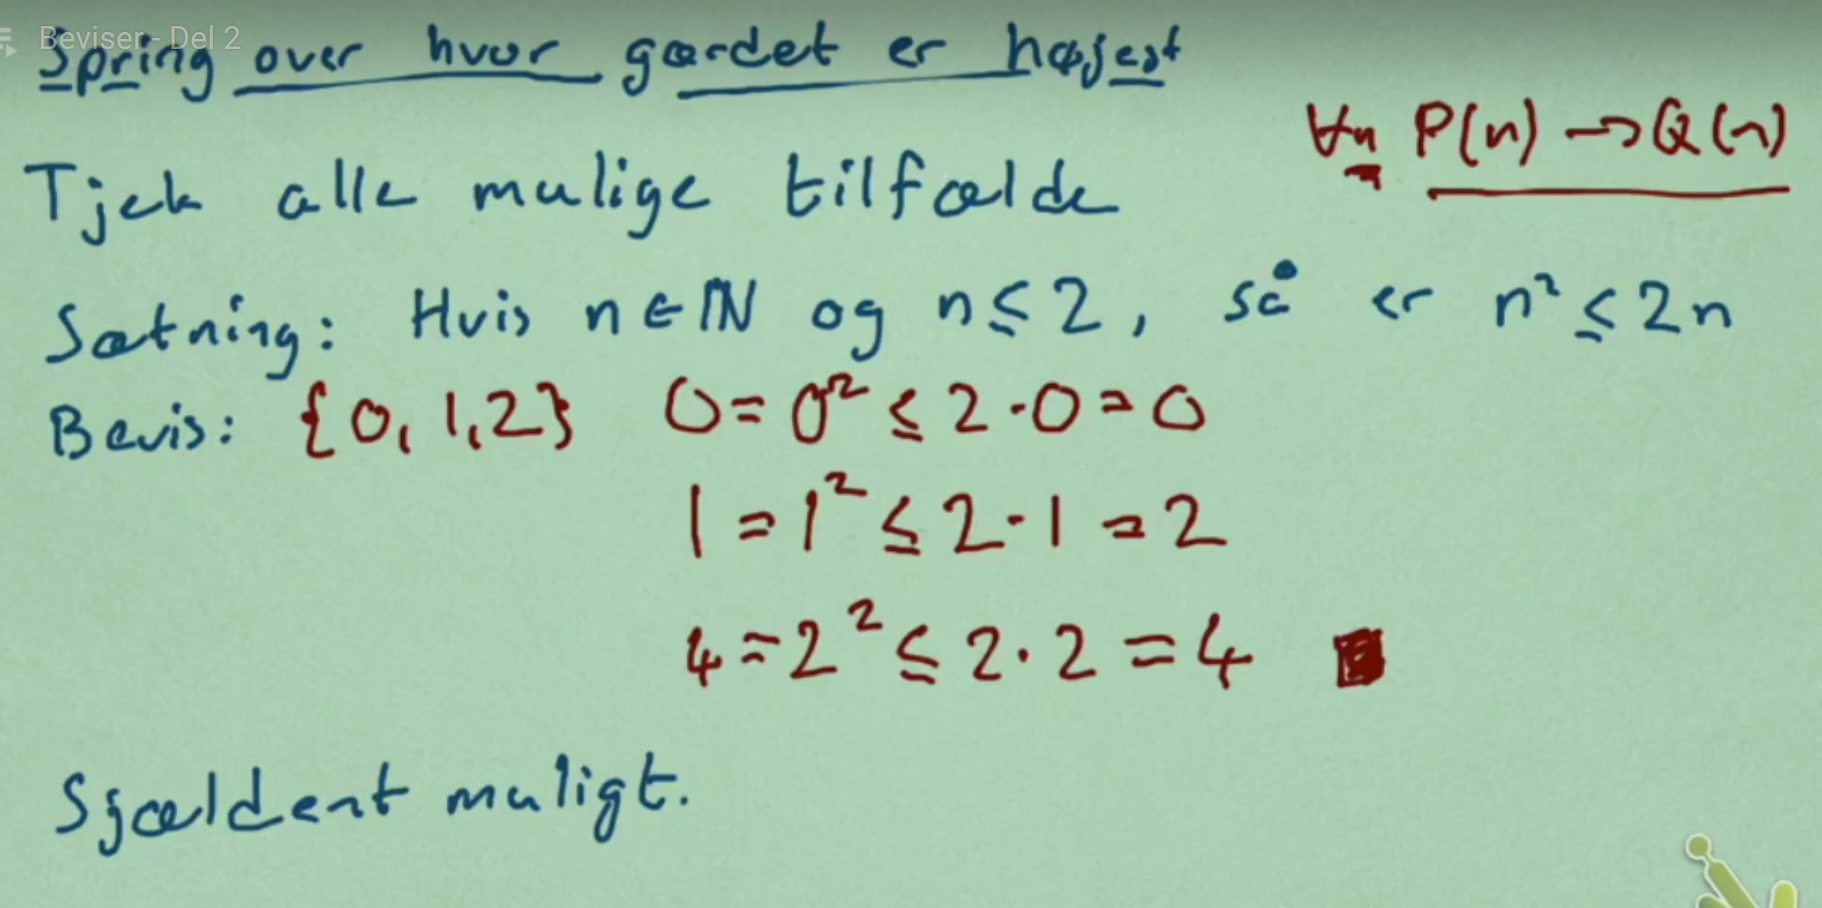 Beviser - Del 2
Spring over hvor gærdet er højest
∀n P(n) → Q(n)
Tjek alle mulige tilfælde
Sætning: Hvis n ∈ ℕ og n ≤ 2, så er n² ≤ 2n
Bevis: {0, 1, 2} 0 = 0² ≤ 2 · 0 = 0
1 = 1² ≤ 2 · 1 = 2
4 = 2² ≤ 2 · 2 = 4 ∎
Sjældent muligt.